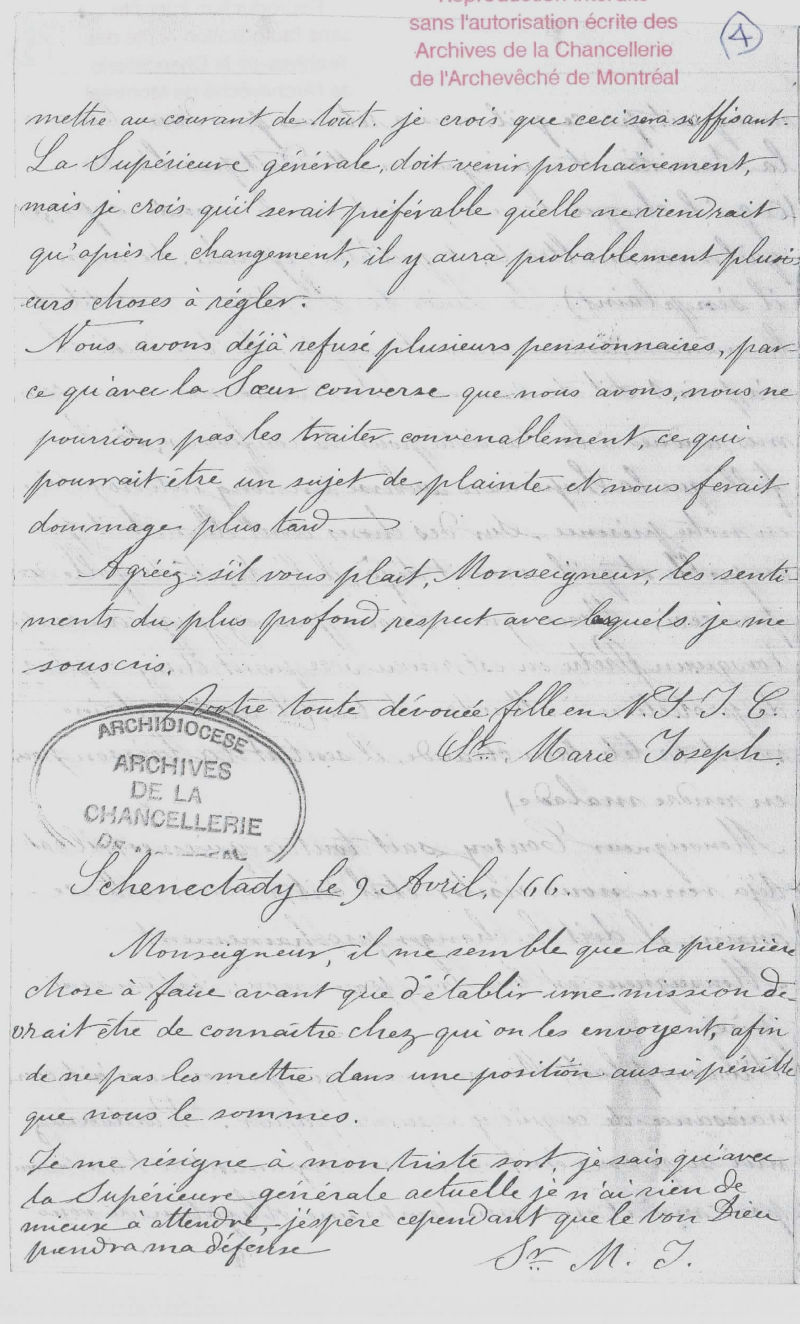 Reproduction interdite
sans l'autorisation écrite des
Archives de la Chancellerie
de l'Archevêché de Montréal
4
mettre au courant de tout. je crois que ceci sera suffisant.
La Supérieure générale, doit venir prochainement,
mais je crois qu'il serait préférable qu'elle ne viendrait
qu'après le changement, il y aura probablement plusi-
eurs choses à régler.
Nous avons déjà refusé plusieurs pensionnaires, par-
ce qu'avec la Sœur converse que nous avons, nous ne
pourrions pas les traiter convenablement, ce qui
pourrait être un sujet de plainte et nous ferait
dommage plus tard
Agréez s'il vous plait, Monseigneur, les senti-
ments du plus profond respect avec lesquels je me
souscris.
Votre toute dévouée fille en N. S. J. C.
Sr. Marie Joseph.
ARCHIDIOCESE
ARCHIVES
DE LA
CHANCELLERIE
DE
Schenectady le 9 Avril, /66.
Monseigneur, il me semble que la première
chose à faire avant que d'établir une mission de-
vrait être de connaître chez qui on les envoyent, afin
de ne pas les mettre dans une position aussi pénible
que nous le sommes.
Je me résigne à mon triste sort, je sais qu'avec
la Supérieure générale actuelle je n'ai rien de
mieux à attendre, j'éspère cependant que le bon Dieu
prendra ma défense
Sr. M. J.